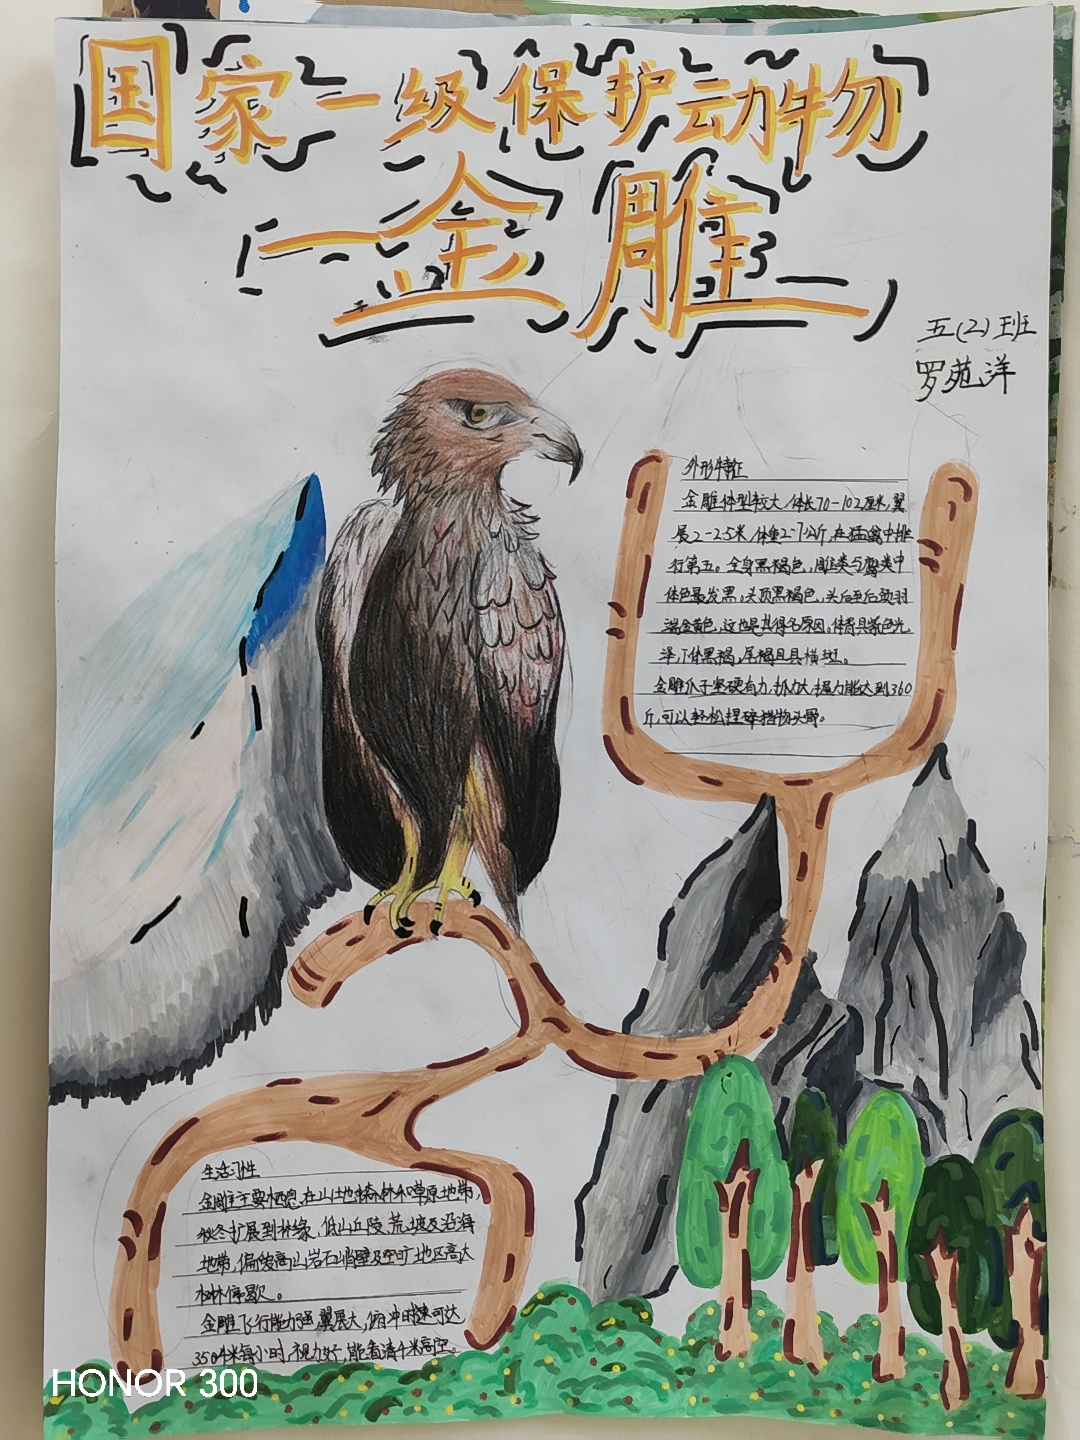 国家一级保护动物
一金雕
五(2)班
罗苑洋
外形特征
金雕体型较大,体长70-102厘米,翼
展2-2.5米,体重2-7公斤,在猛禽中排
行第五。全身黑褐色,雕类与鹰类中
体色最发黑。头顶黑褐色,头后至后颈羽
端金黄色,这也是其得名原因。体背具紫色光
泽,下体黑褐,尾褐且具横斑。
金雕爪子坚硬有力,抓力大,握力能达到360
斤,可以轻松捏碎猎物头骨。
生活习性
金雕主要栖息在山地森林和草原地带,
秋冬扩展到林缘,低山丘陵,荒坡及沿海
地带,偏爱高山岩石峭壁及空旷地区高大
树林停歇。
金雕飞行能力强,翼展大,俯冲时速可达
350千米每小时,视力好,能看清千米高空。
HONOR 300